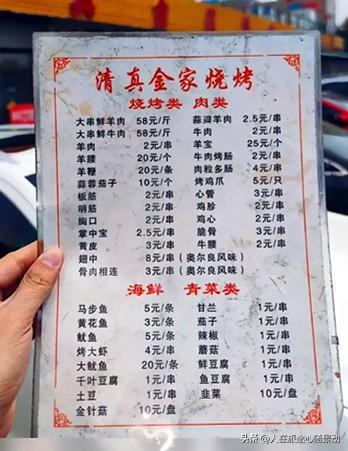 清真金家烧烤
烧烤类 肉类
大串鲜羊肉 58元/斤 蒜瓣羊肉 2.5元/串
大串鲜牛肉 58元/斤 牛肉 2元/串
羊肉 2元/串 羊宝 25元/个
羊腰 20元/个 牛肉烤肠 2元/串
羊鞭 20元/条 肉粒多肠 4元/串
蒜蓉茄子 10元/个 烤鸡爪 5元/只
板筋 2元/串 心管 3元/串
明筋 2元/串 鸡胗 2元/串
胸口 2元/串 鸡心 2元/串
掌中宝 2.5元/串 脆骨 3元/串
黄皮 3元/串 牛腰 2元/串
翅中 8元/串(奥尔良风味)
骨肉相连 3元/串(奥尔良风味)
海鲜 青菜类
马步鱼 5元/条 甘兰 1元/串
黄花鱼 3元/条 茄子 1元/串
鱿鱼 5元/串 辣椒 1元/串
烤大虾 4元/串 蘑菇 1元/串
大鱿鱼 20元/条 鲜豆腐 1元/串
千叶豆腐 1元/串 鱼豆腐 2元/串
土豆 1元/串 韭菜 10元/盘
金针菇 10元/盘
头条 @人在旅途心随景动